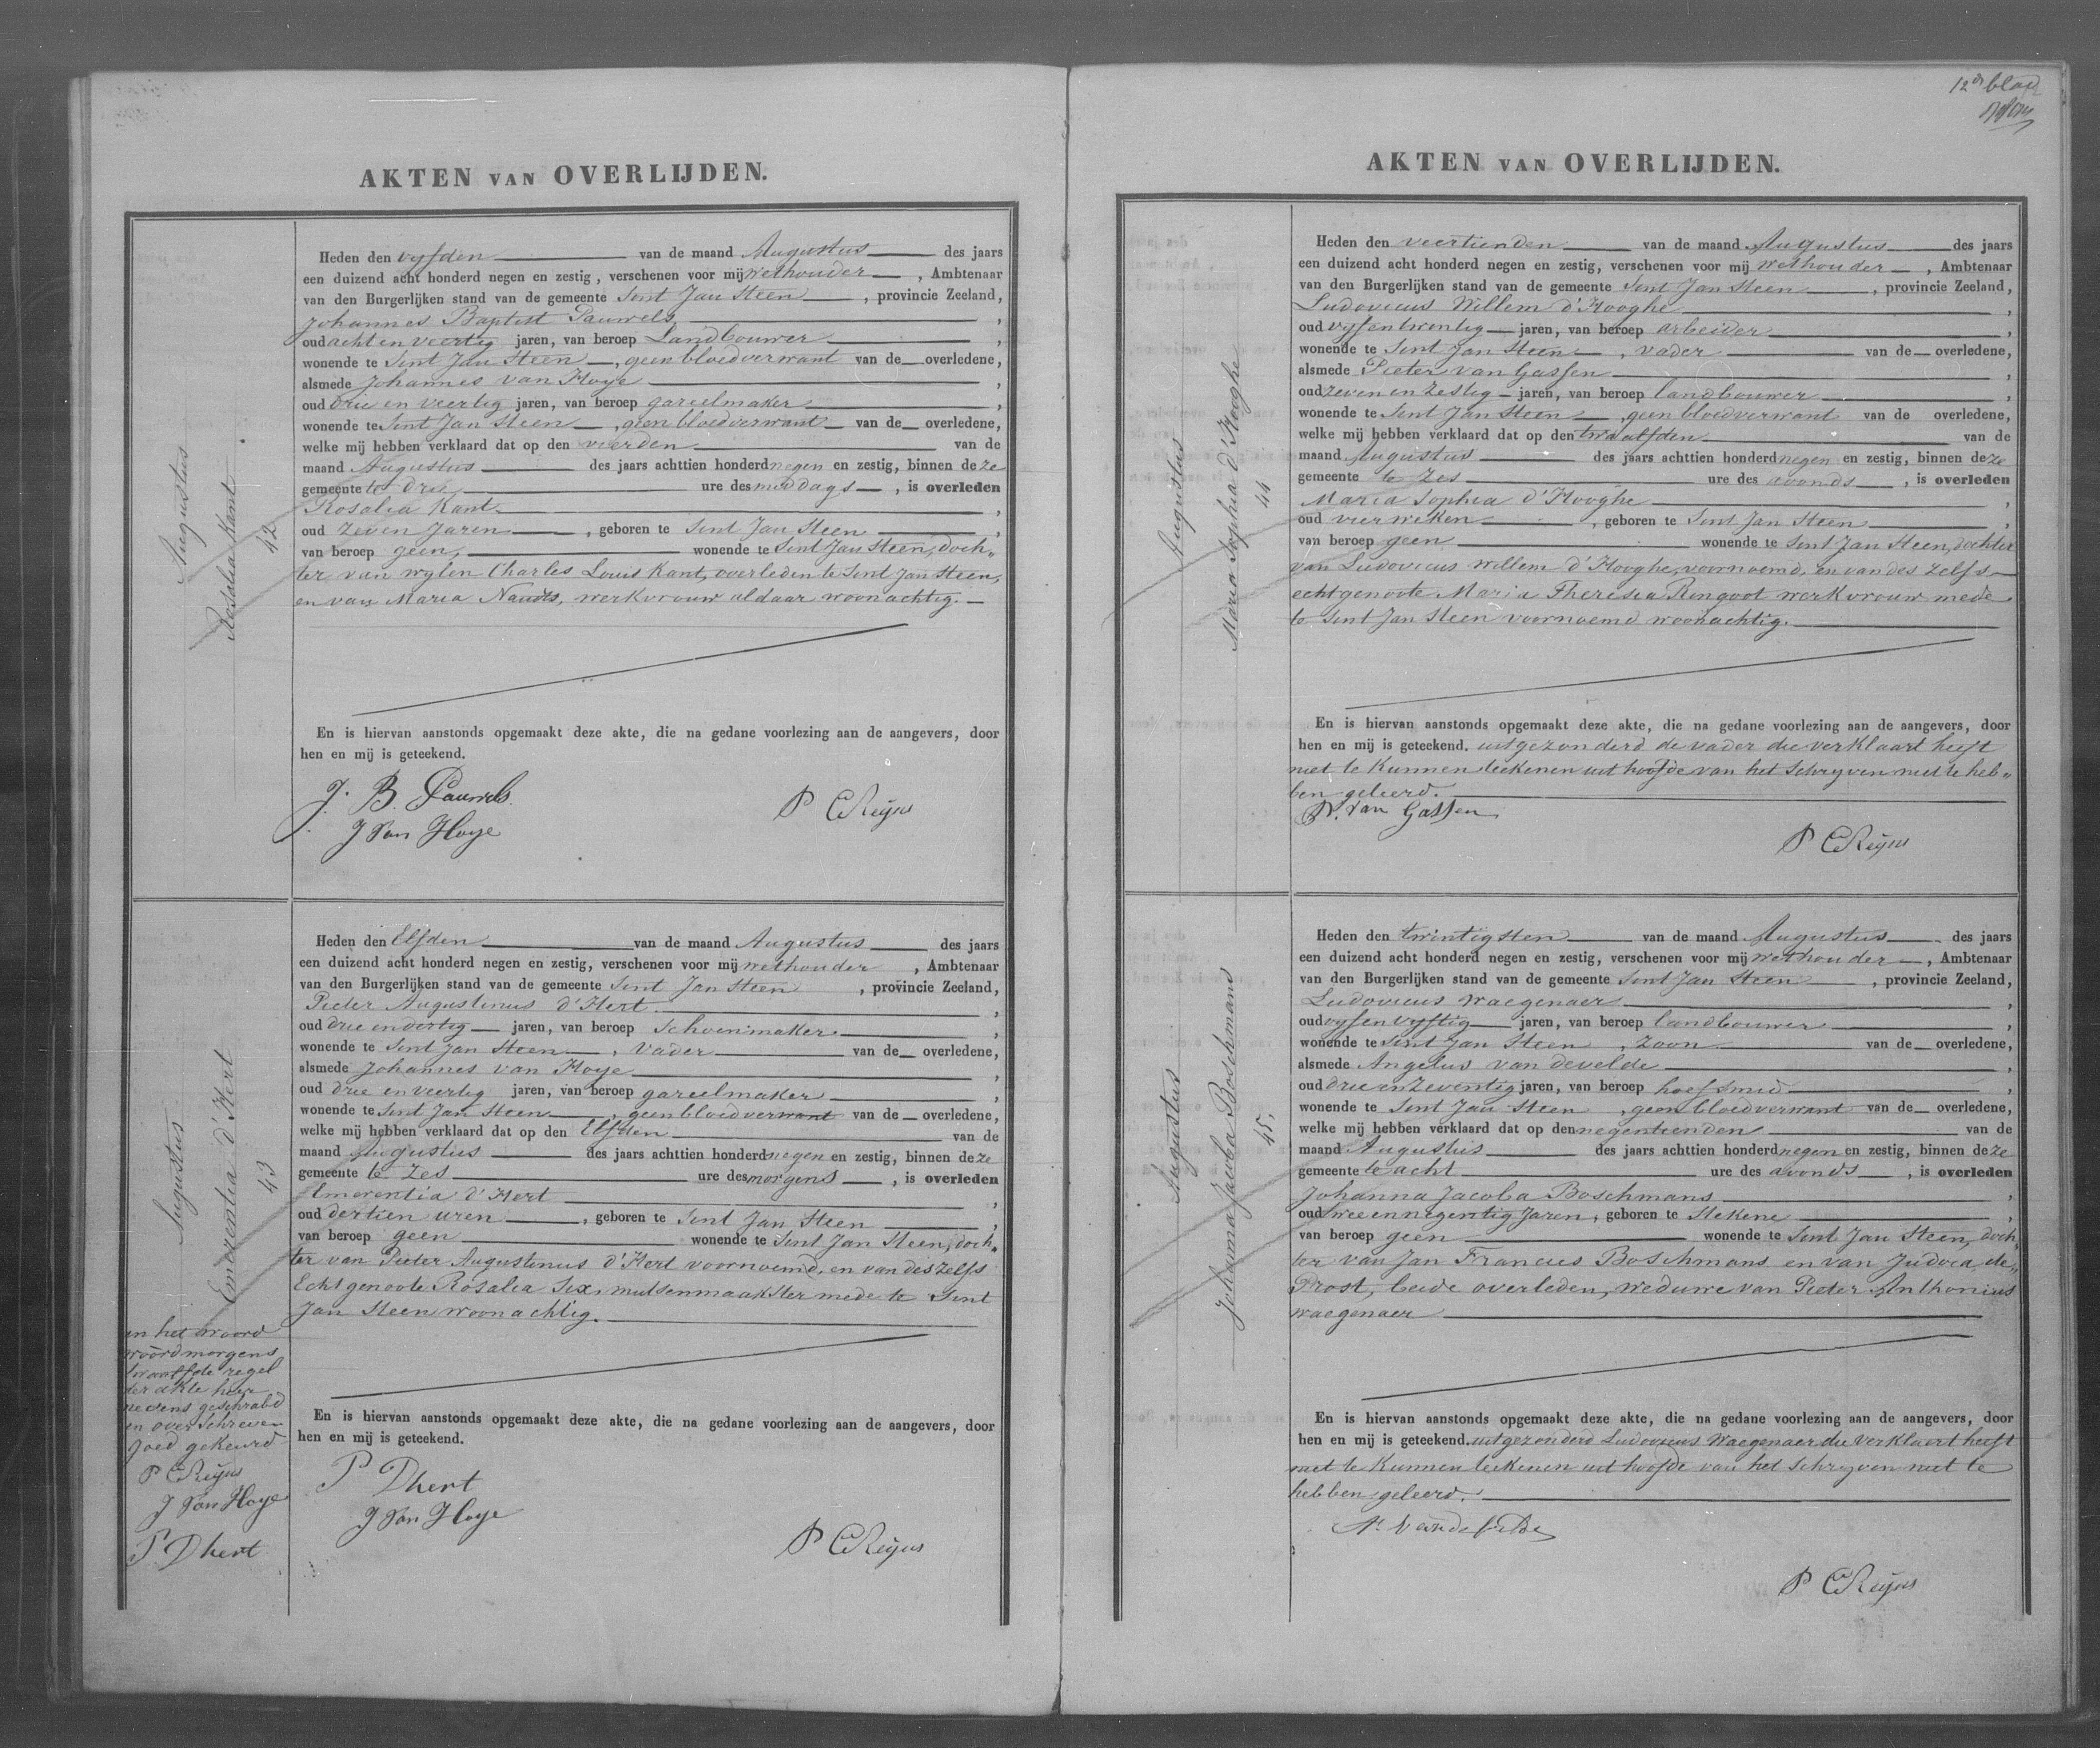 AKTEN VAN OVERLIJDEN.
Augustus
Rosalia Kant
42
Heden den vyfden van de maand Augustus des jaars
een duizend acht honderd negen en zestig, verschenen voor mij wethouder, Ambtenaar
van den Burgerlijken stand van de gemeente Sint Jan Steen, provincie Zeeland,
Johannes Baptist Pauwels,
oud acht en veertig jaren, van beroep Landbouwer,
wonende te Sint Jan Steen, geen bloedverwant van de overledene,
alsmede Johannes van Hoye,
oud drie en veertig jaren, van beroep gareelmaker,
wonende te Sint Jan Steen, geen bloedverwant van de overledene,
welke mij hebben verklaard dat op den vierden van de
maand Augustus des jaars achttien honderd negen en zestig, binnen deze
gemeente te drie ure des middags, is overleden
Rosalia Kant,
oud zeven jaren, geboren te Sint Jan Steen,
van beroep geen, wonende te Sint Jan Steen, doch„
ter van wylen Charles Louis Kant, overleden te Sint Jan Steen,
en van Maria Naudts, werkvrouw aldaar woonachtig.
En is hiervan aanstonds opgemaakt deze akte, die na gedane voorlezing aan de aangevers, door
hen en mij is geteekend.
J. B. Pauwels
J Van Hoye
P C Reijns
Augustus
Emerentia d'Hert
43
Heden den Elfden van de maand Augustus des jaars
een duizend acht honderd negen en zestig, verschenen voor mij wethouder, Ambtenaar
van den Burgerlijken stand van de gemeente Sint Jan Steen, provincie Zeeland,
Pieter Augustinus d'Hert,
oud drie en dertig jaren, van beroep Schoenmaker,
wonende te Sint Jan Steen, vader van de overledene,
alsmede Johannes van Hoye,
oud drie en veertig jaren, van beroep gareelmaker,
wonende te Sint Jan Steen, geen bloedverwant van de overledene,
welke mij hebben verklaard dat op den Elfden van de
maand Augustus des jaars achttien honderd negen en zestig, binnen deze
gemeente te zes ure des morgens, is overleden
Emerentia d'Hert,
oud dertien uren, geboren te Sint Jan Steen,
van beroep geen wonende te Sint Jan Steen, doch„
ter van Pieter Augustinus d'Hert voornoemd, en van deszelfs
Echtgenoote Rosalia Six, mutsenmaakster mede te Sint
Jan Steen woonachtig.
En is hiervan aanstonds opgemaakt deze akte, die na gedane voorlezing aan de aangevers, door
hen en mij is geteekend.
P Dhert
J Van Hoye
P C Reijns
in het woord
woord morgens
twaalfde regel
der akte hier
nevens geschrabd
en overschreven
goed gekeurd
P C Reijns
J Van Hoye
P Dhert
12e blad
AKTEN VAN OVERLIJDEN.
Augustus
Maria Sophia d'Hooghe
44
Heden den veertienden van de maand Augustus des jaars
een duizend acht honderd negen en zestig, verschenen voor mij wethouder, Ambtenaar
van den Burgerlijken stand van de gemeente Sint Jan Steen, provincie Zeeland,
Ludovicus Willem d'Hooghe,
oud vyfentwintig jaren, van beroep arbeider,
wonende te Sint Jan Steen, vader van de overledene,
alsmede Pieter van Gassen,
oud zeven en zestig jaren, van beroep landbouwer,
wonende te Sint Jan Steen, geen bloedverwant van de overledene,
welke mij hebben verklaard dat op den twaalfden van de
maand Augustus des jaars achttien honderd negen en zestig, binnen deze
gemeente te zes ure des avonds, is overleden
Maria Sophia d'Hooghe,
oud vier weken, geboren te Sint Jan Steen,
van beroep geen wonende te Sint Jan Steen, dochter
van Ludovicus Willem d'Hooghe, voornoemd, en van des zelfs
echtgenoote Maria Theresia Ringoot werkvrouw mede
te Sint Jan Steen voornoemd woonachtig.
En is hiervan aanstonds opgemaakt deze akte, die na gedane voorlezing aan de aangevers, door
hen en mij is geteekend. uitgezonderd de vader die verklaart heeft
niet te kunnen teekenen uit hoofde van het schryven niet te heb„
ben geleerd.
P. van Gassen
P C Reijns
Augustus
Johanna Jacoba Boschmans
45.
Heden den twintigsten van de maand Augustus des jaars
een duizend acht honderd negen en zestig, verschenen voor mij wethouder, Ambtenaar
van den Burgerlijken stand van de gemeente Sint Jan Steen, provincie Zeeland,
Ludovicus Waegenaer,
oud vyfenvyftig jaren, van beroep landbouwer,
wonende te Sint Jan Steen, zoon van de overledene,
alsmede Angelus van de velde,
oud drie en zeventig jaren, van beroep hoefsmid,
wonende te Sint Jan Steen, geen bloedverwant van de overledene,
welke mij hebben verklaard dat op den negentienden van de
maand Augustus des jaars achttien honderd negen en zestig, binnen deze
gemeente te acht ure des avonds, is overleden
Johanna Jacoba Boschmans,
oud twee en negentig jaren, geboren te Stekene,
van beroep geen wonende te Sint Jan Steen, doch„
ter van Jan Francies Boschmans en van Judoca de„
Prost, beide overleden, weduwe van Pieter Anthonius
waegenaer
En is hiervan aanstonds opgemaakt deze akte, die na gedane voorlezing aan de aangevers, door
hen en mij is geteekend. uitgezonderd Ludovicus Waegenaer die verklaart heeft
niet te kunnen teekenen uit hoofde van het schryven niet te
hebben geleerd.
A. Van de Velde
P C Reijns